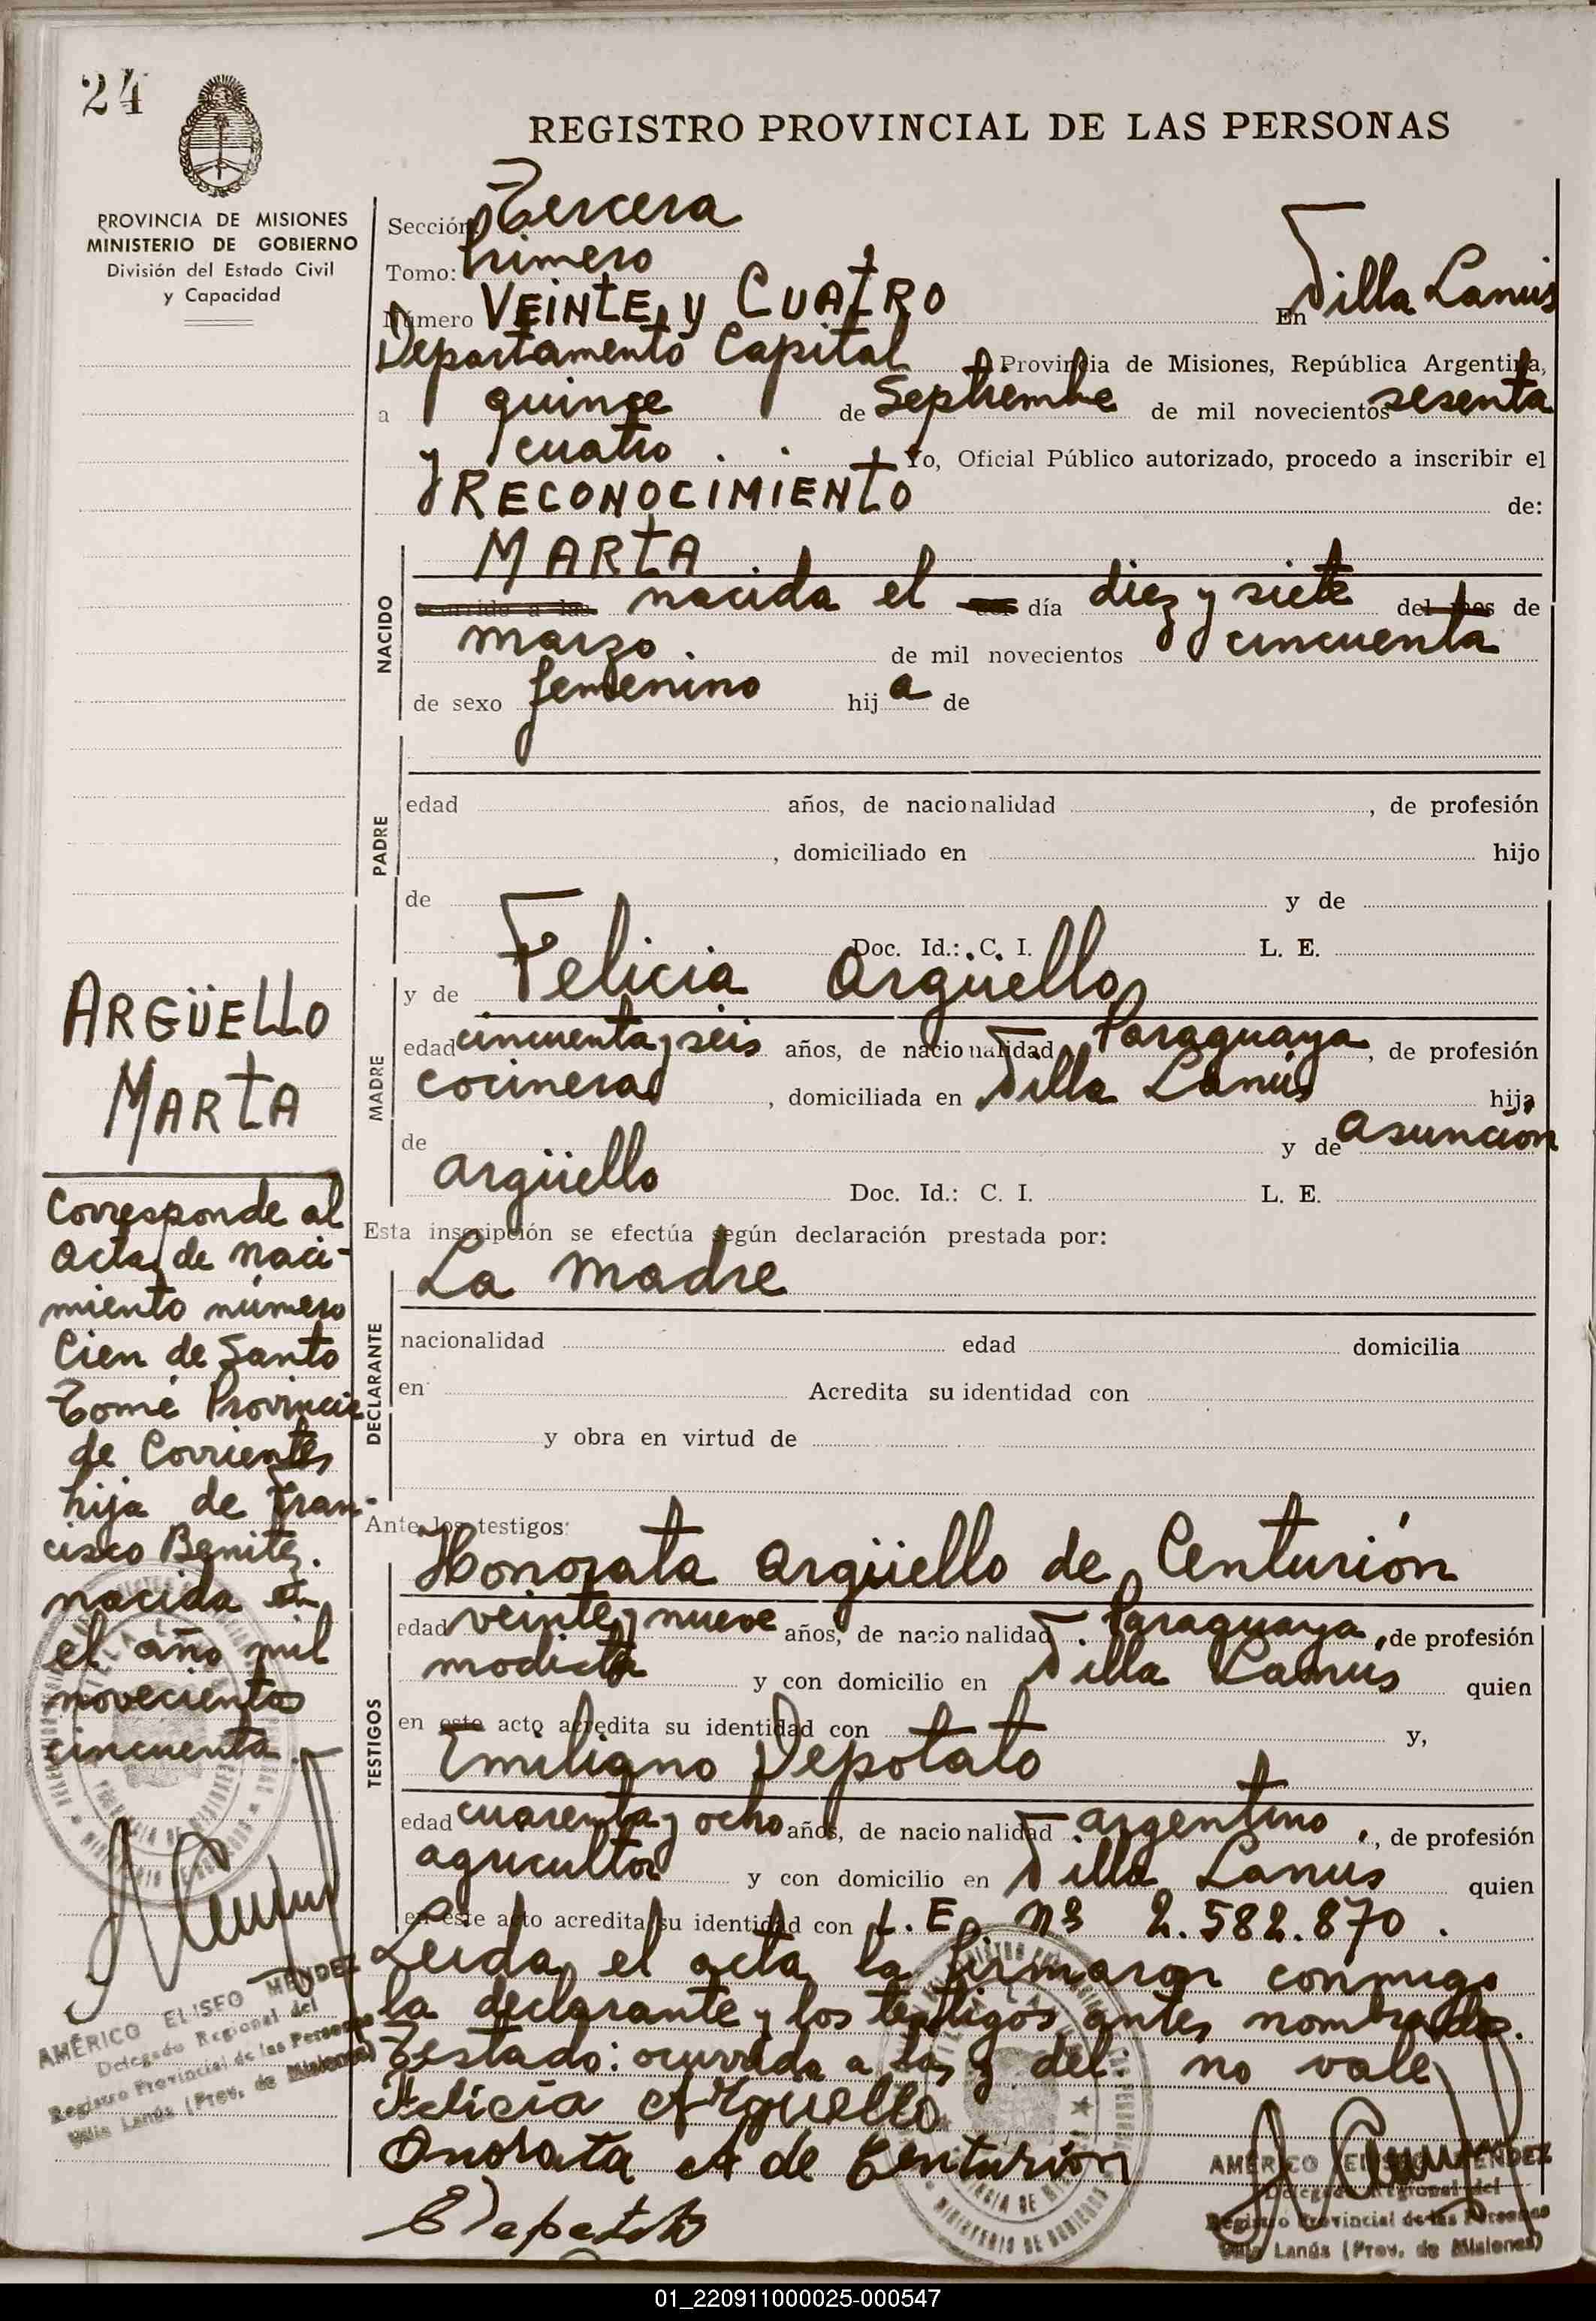 24
REGISTRO PROVINCIAL DE LAS PERSONAS
PROVINCIA DE MISIONES
MINISTERIO DE GOBIERNO
División del Estado Civil
y Capacidad
Sección Tercera
Tomo: Primero
Número VEINTE y CUATRO En Villa Lanús
Departamento Capital Provincia de Misiones, República Argentina,
a quince de Septiembre de mil novecientos sesenta
y cuatro . . Yo, Oficial Público autorizado, procedo a inscribir el
RECONOCIMIENTO de:
MARTA
NACIDO
ocurrido a las nacida el del día diez y siete del mes de
marzo. de mil novecientos cincuenta
de sexo femenino hija de
PADRE
edad años, de nacionalidad , de profesión
, domiciliado en hijo
de y de
Doc. Id.: C. I. L. E.
MADRE
y de Felicia Argüello,
edad cincuenta y seis años, de nacionalidad Paraguaya , de profesión
cocinera , domiciliada en Villa Lanús hija
de y de Asunción
Argüello Doc. Id.: C. I. L. E.
Esta inscripción se efectúa según declaración prestada por:
La madre
DECLARANTE
nacionalidad edad domicilia
en Acredita su identidad con
y obra en virtud de
Ante los testigos:
TESTIGOS
Honorata Argüello de Centurión
edad veinte y nueve años, de nacionalidad Paraguaya , de profesión
modista y con domicilio en Villa Lanús quien
en este acto acredita su identidad con y,
Emiliano Depotato
edad cuarenta y ocho años, de nacionalidad argentino , de profesión
agricultor y con domicilio en Villa Lanus quien
en este acto acredita su identidad con L. E. nº 2.582.870 .
Leida el acta la firmaron conmigo
la declarante y los testigos antes nombrados.
Testado: ocurrido a las y del: no vale
Felicia Arguello
Onorata A de Centurión
AMÉRICO ELISEO MENDEZ
Delegado Regional del
Registro Provincial de las Personas
Villa Lanús (Prov. de Misiones)
ARGÜELLO
MARTA
Corresponde al
acta de naci-
miento número
Cien de Santo
Tomé Provincia
de Corrientes
hija de Fran-
cisco Benitez.
nacida en
el año mil
novecientos
cincuenta.
AMÉRICO ELISEO MENDEZ
Delegado Regional del
Registro Provincial de las Personas
Villa Lanús (Prov. de Misiones)
01_220911000025-000547